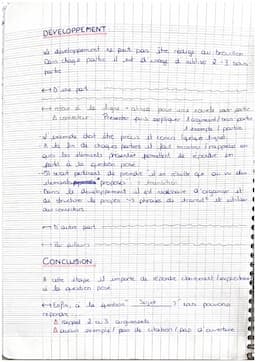 DÉVELOPPEMENT
Le développement ne peut pas être rédigé au brouillon
Dans chaque partie il est d'usage d'utiliser 2-3 sous
partie
↔ D'une part
↔ retour à la ligne + alinéa pour une nouvelle sous partie
△ connecteur Présenter puis expliquer 1 argument / sous partie
1 exemple / partie
L'exemple doit être précis et concis (quelque lignes).
A la fin de chaque parties il faut montrer / rappeler en
quoi les éléments présentés permettent de répondre en
partie à la question posé
Il serait pertinent de prendre il en résulte que au vu des
éléments proposés : transition
Dans le développement il est nécessaire d'organiser et
de structurer le propos → phrases de transit° et utiliser
des connecteurs
↔ D'autre part
↔ Par ailleurs
CONCLUSION
A cette étape il importe de répondre clairement
à la question posé
↔ Enfin, à la question " Sujet ", nous pouvons
répondre
△ Rappel 2 ou 3 arguments
△ aucun exemple / pas de citation / pas d'ouverture